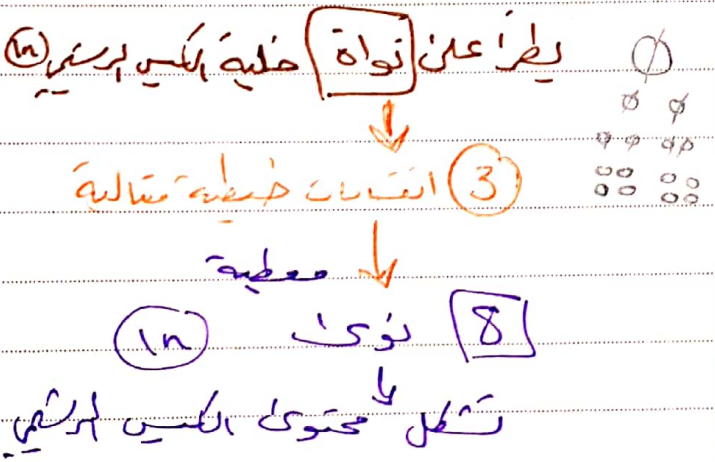 يطرأ على نواة خلية الكيس الرشيمي 1n
3 انقسامات خيطية متتالية
معطية
8 نوى 1n
تشكل محتوى الكيس الرشيمي